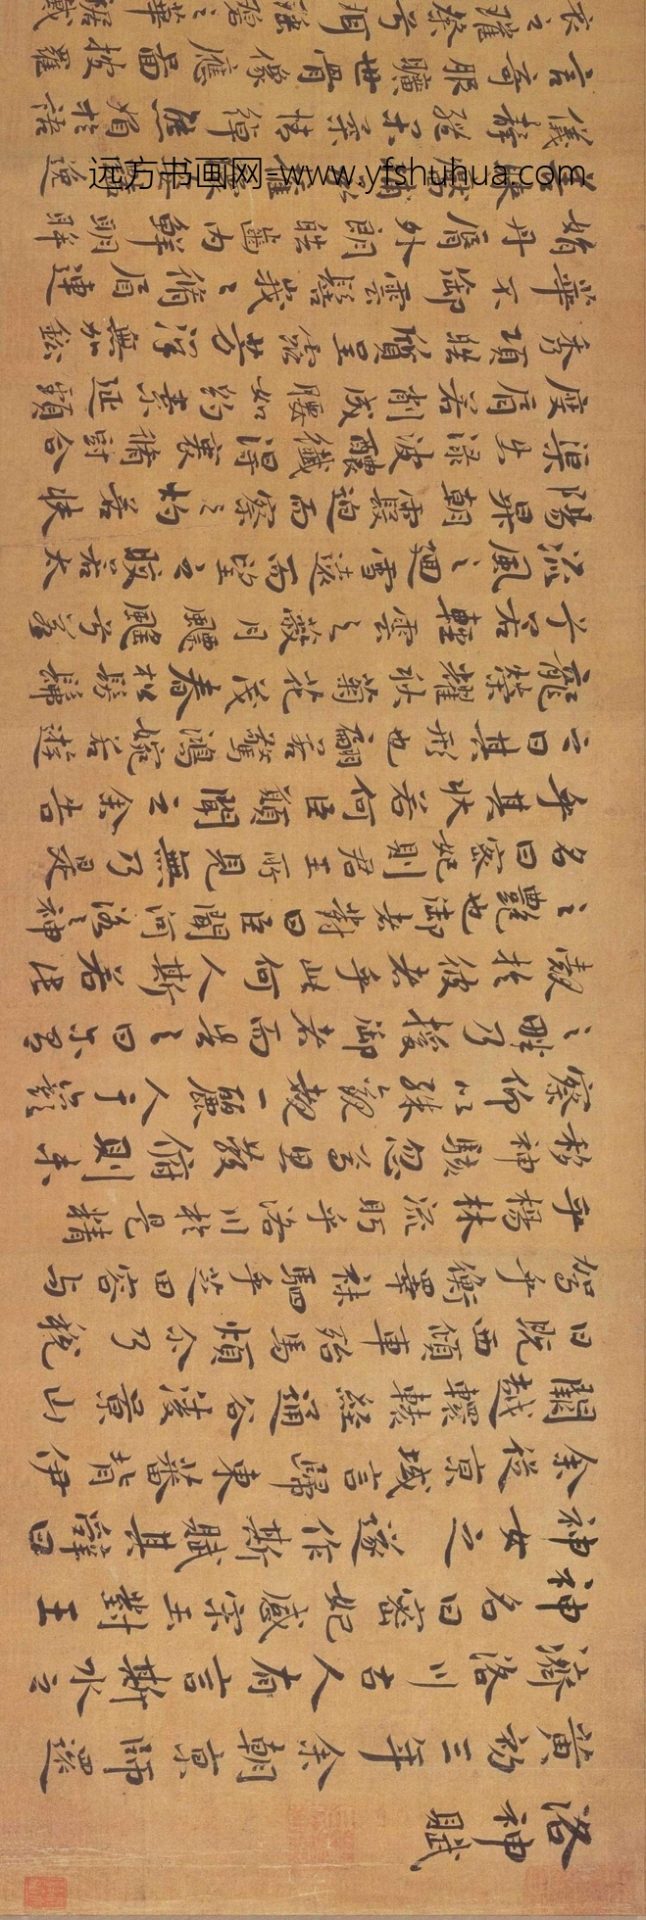 洛神賦
黃初三年余朝京師還
濟洛川古人有言斯水之
神名曰密妃感宋玉對王
神女之遂作斯賦其辭曰
余從京域言歸東蕃背伊
闕越轘轅經通谷陵景山
日既西傾車殆馬煩尒乃稅
駕乎蘅皋秣駟乎芝田容与
乎楊林流眄乎洛川於是精
移神駭忽焉思散俯則未
察仰以殊觀覩一麗人于巖
之畔乃援御者而告之曰尔有
覿於彼者乎此何人斯若此
之艷也御者對曰臣聞河洛之神
名曰密妃則君王所見無乃是
乎其狀若何臣願聞之余告
之曰其形也翩若驚鴻婉若遊
龍榮耀秋菊花茂春松髣髴
兮若輕雲之蔽月飄颻兮若
流風之迴雪遠而望之皎若太
陽昇朝霞迫而察之灼若芙
渠出淥波醲纖得衷脩短合
度肩若削成腰如約素延頸
秀項皓質呈露芳澤無加鉛
華不御雲髻峩峩脩眉連
娟丹脣外朗皓齒內鮮明眸
儀靜體閑柔情綽態媚於語
言奇服曠世骨像應圖披羅
衣之璀粲兮珥瑤碧之華琚戴
远方书画网 www.yfshuhua.com